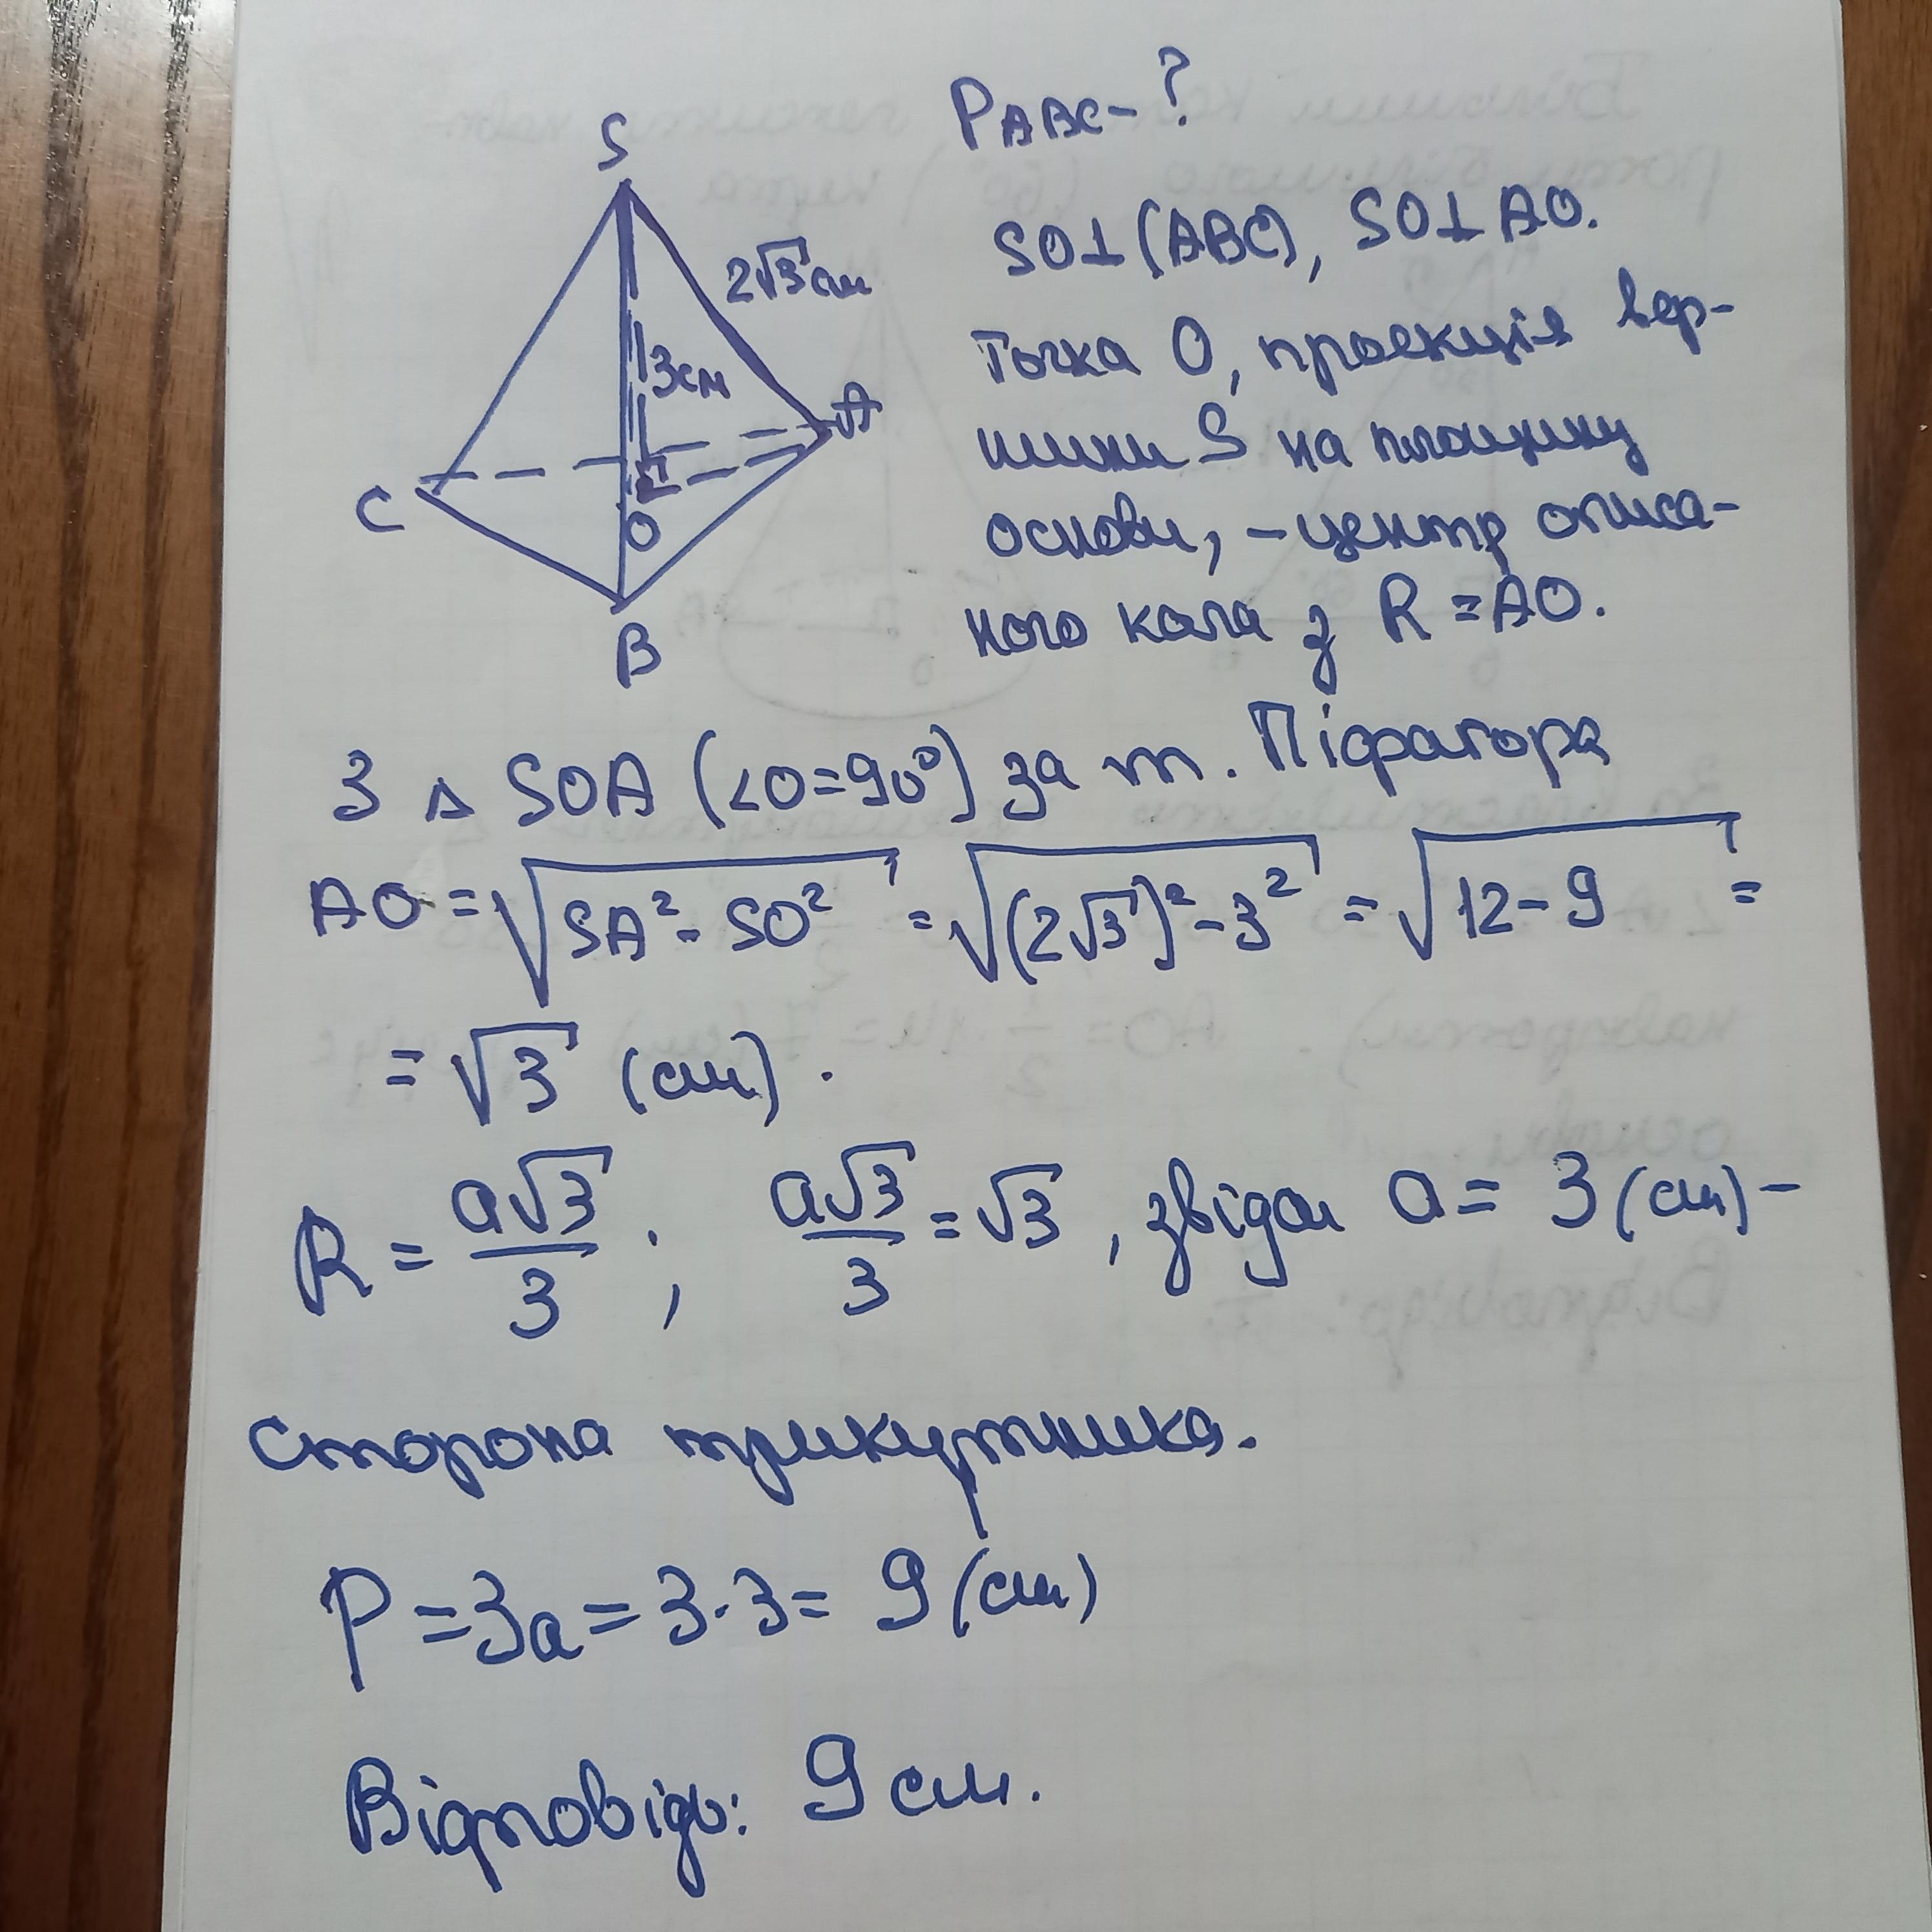 P ABC - ?
S
2√3 см
3 см
A
C
O
B
SO⊥(ABC), SO⊥AO.
Точка O, проекція вер-
шини S на площину
основи, - центр описа-
ного кола з R = AO.
З △ SOA (∠O=90°) за т. Піфагора
AO = √(SA² - SO²) = √((2√3)² - 3²) = √(12 - 9) =
= √3 (см).
R = a√3/3 ; a√3/3 = √3 , звідси a = 3 (см) -
сторона трикутника.
P = 3a = 3·3 = 9 (см)
Відповідь: 9 см.